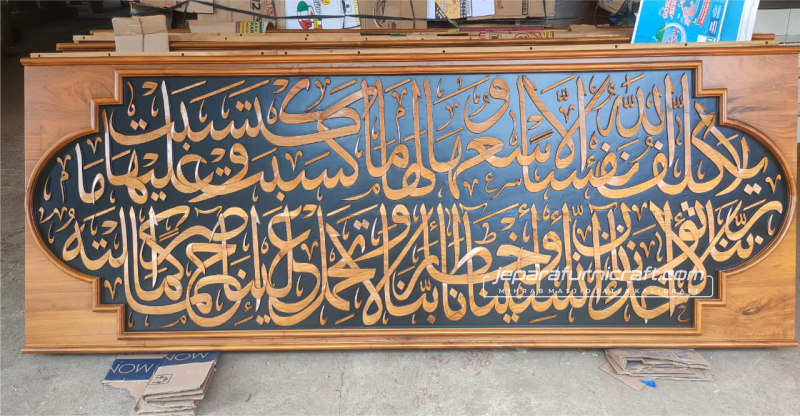 لا يكلف الله نفسا إلا وسعها لها ما كسبت وعليها ما اكتسبت
ربنا لا تؤاخذنا إن نسينا أو أخطأنا ربنا ولا تحمل علينا إصرا كما حملته
jeparafurnicraft.com
MON